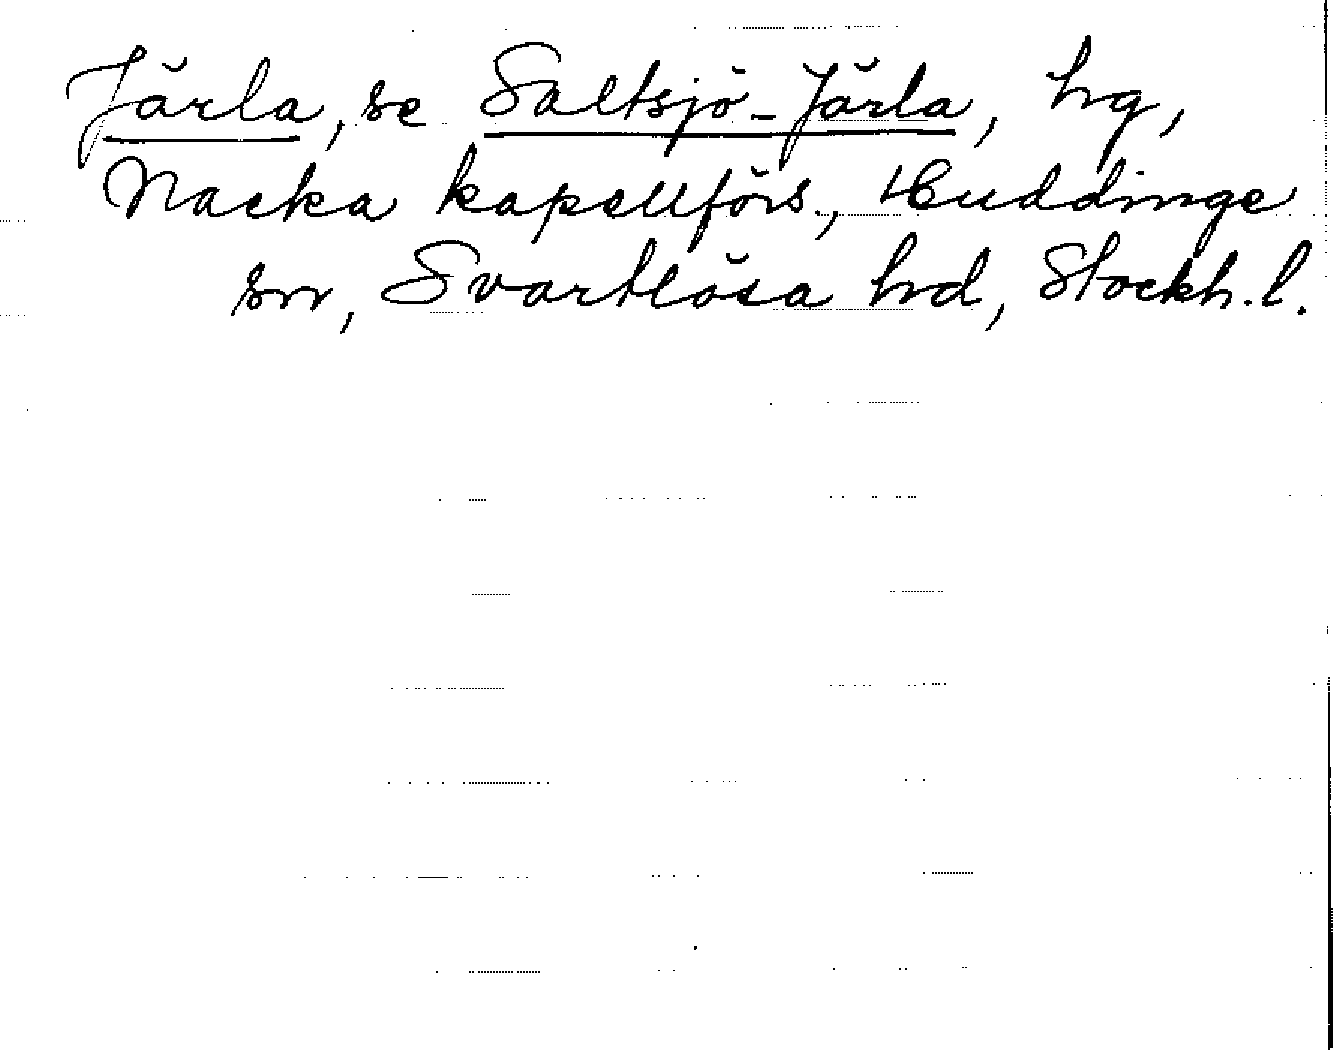 Järla, se Saltsjö-Järla, hg,
Nacka kapellförs., Huddinge
sn, Svartlösa hd, Stockh. l.